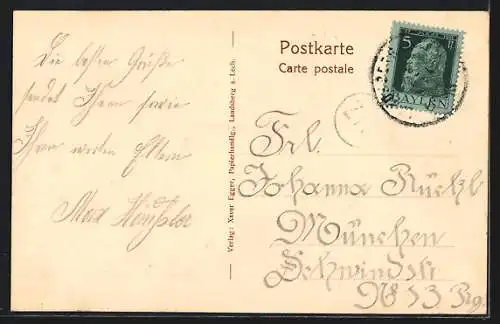 Die besten Grüße
sendet Ihnen sowie
Ihren werten Eltern
Max
Verlag: Xaver Egger, Papierhandlg., Landsberg a. Lech.
Postkarte
Carte postale
5
BAYERN
Frl.
Johanna
München
Schwindstr
No 13